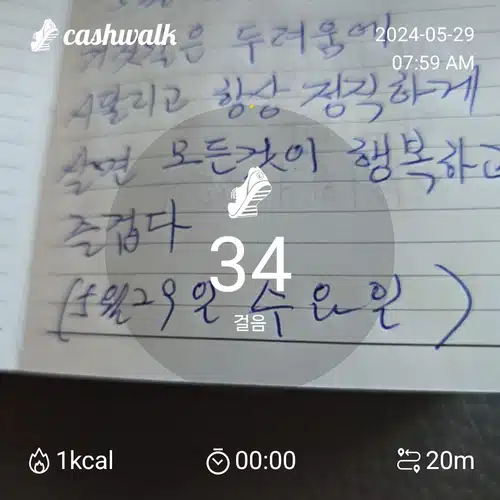 cashwalk
2024-05-29
07:59 AM
두려움에
시달리고 항상 정직하게
살면 모든것이 행복하고
즐겁다
(5월29일 수요일)
34
걸음
1kcal
00:00
20m